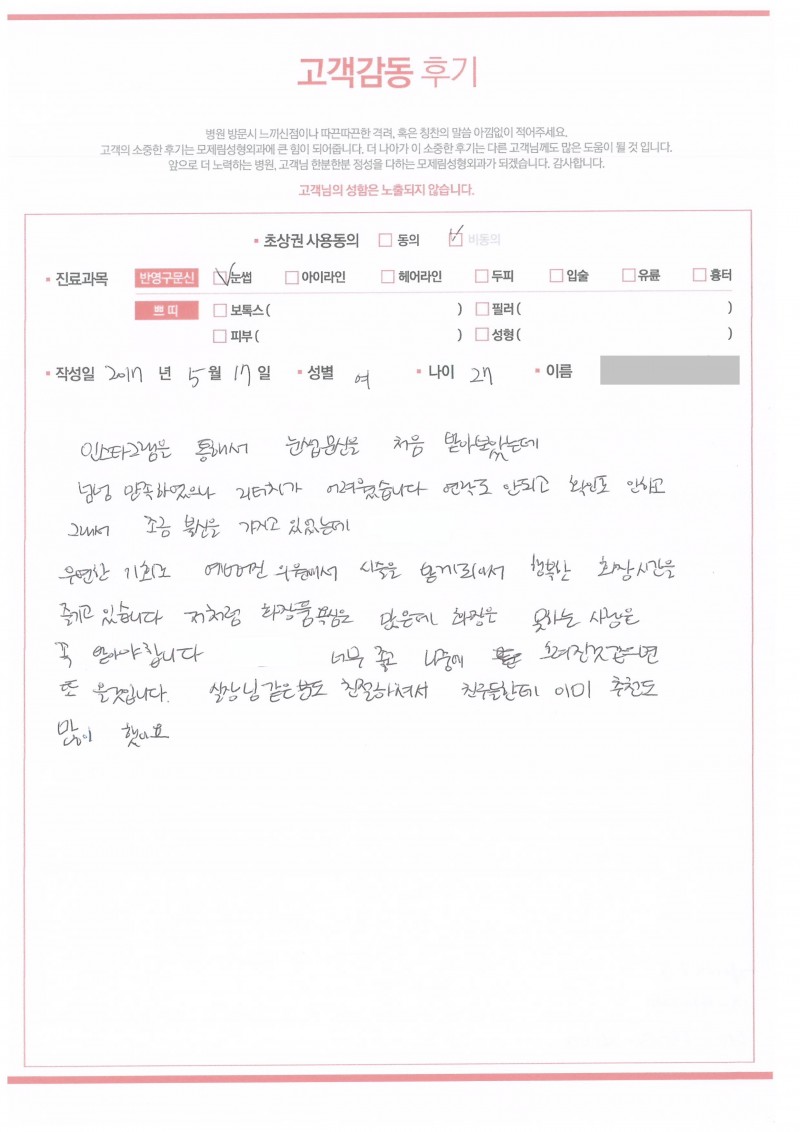 고객감동 후기
병원 방문시 느끼신점이나 따끈따끈한 격려, 혹은 칭찬의 말씀 아낌없이 적어주세요.
고객의 소중한 후기는 모제림성형외과에 큰 힘이 되어줍니다. 더 나아가 이 소중한 후기는 다른 고객님께도 많은 도움이 될 것 입니다.
앞으로 더 노력하는 병원, 고객님 한분한분 정성을 다하는 모제림성형외과가 되겠습니다. 감사합니다.
고객님의 성함은 노출되지 않습니다.
초상권 사용동의 동의 비동의
진료과목 반영구문신 눈썹 아이라인 헤어라인 두피 입술 유륜 흉터
쁘띠 보톡스( ) 필러( )
피부( ) 성형( )
작성일 2017 년 5 월 17 일 성별 여 나이 27 이름
인스타그램을 통해서 눈썹문신을 처음 받아보았는데
넘넘 만족하였으나 리터치가 어려웠습니다 연락도 안되고 확인도 안하고
그래서 조금 불신을 가지고 있었는데
우연한 기회로 시술을 받게되어서 행복한 화장시간을
즐기고 있습니다 저처럼 화장품 욕심은 많은데 화장은 못하는 사람은
꼭 받아야합니다 너무 좋고 나중에 흐려진것같으면
또 올것입니다. 실장님 같은분도 친절하셔서 친구들한테 이미 추천도
많이 했어요